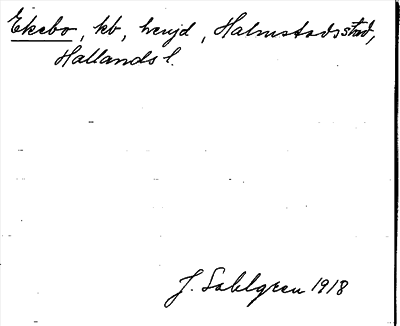 Ekebo, kb, hemjd, Halmstads stad,
Hallands l.
J. Sahlgren 1918